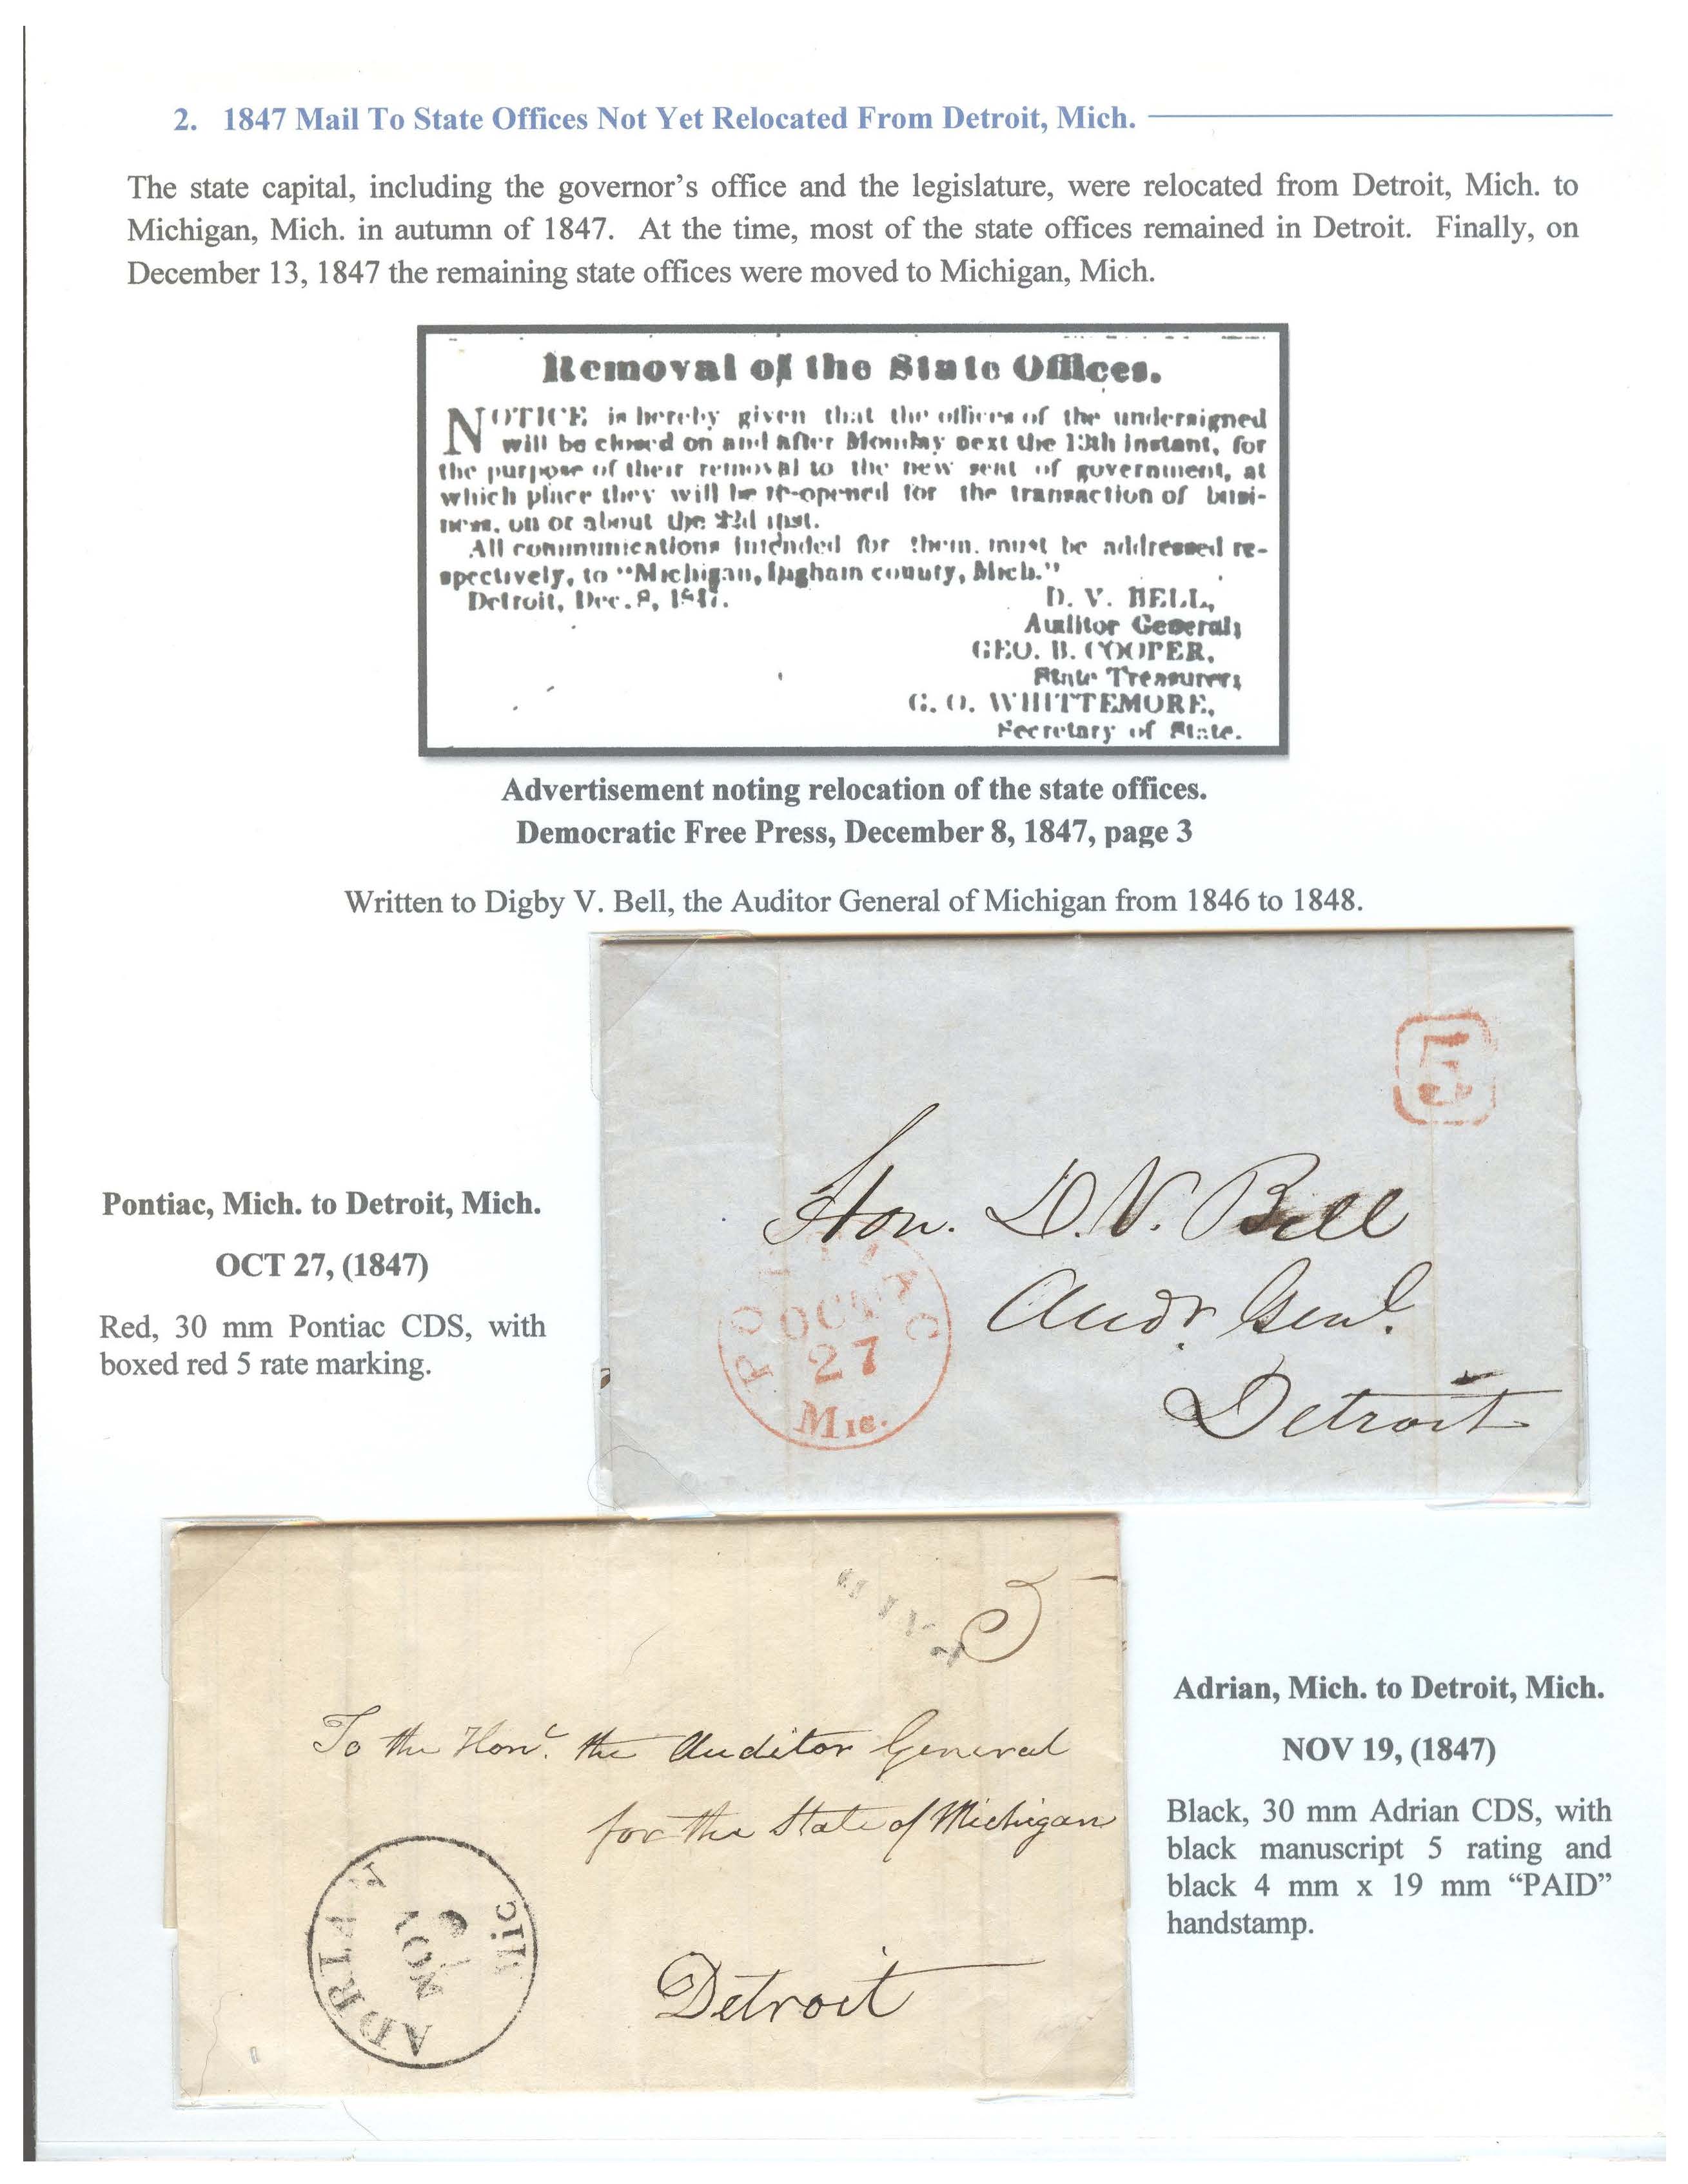 2. 1847 Mail To State Offices Not Yet Relocated From Detroit, Mich.
The state capital, including the governor's office and the legislature, were relocated from Detroit, Mich. to
Michigan, Mich. in autumn of 1847. At the time, most of the state offices remained in Detroit. Finally, on
December 13, 1847 the remaining state offices were moved to Michigan, Mich.
Removal of the State Offices.
NOTICE is hereby given that the offices of the undersigned
will be closed on and after Monday next the 13th instant, for
the purpose of their removal to the new seat of government, at
which place they will be re-opened for the transaction of busi-
ness, on or about the inst.
All communications intended for them, must be addressed re-
spectively, to "Michigan, Ingham county, Mich."
Detroit, Dec. 8, 1847.
D. V. BELL,
Auditor General;
GEO. B. COOPER,
State Treasurer;
G. O. WHITTEMORE,
Secretary of State.
Advertisement noting relocation of the state offices.
Democratic Free Press, December 8, 1847, page 3
Written to Digby V. Bell, the Auditor General of Michigan from 1846 to 1848.
5
Hon. D. V. Bell
Audr. Genl.
Detroit
PONTIAC
OCT
27
Mic.
Pontiac, Mich. to Detroit, Mich.
OCT 27, (1847)
Red, 30 mm Pontiac CDS, with
boxed red 5 rate marking.
PAID
5
To the Honl. the Auditor General
for the State of Michigan
Detroit
ADRIAN
NOV
19
Mic
Adrian, Mich. to Detroit, Mich.
NOV 19, (1847)
Black, 30 mm Adrian CDS, with
black manuscript 5 rating and
black 4 mm x 19 mm "PAID"
handstamp.